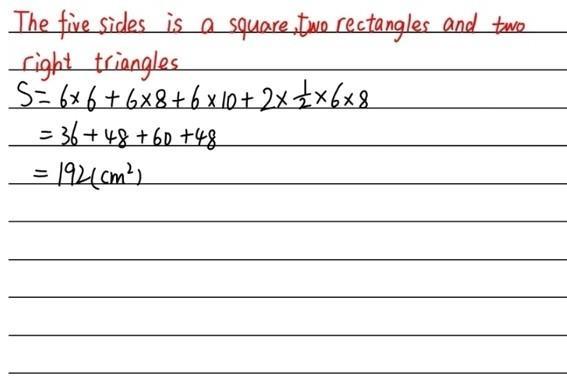 The five sides is a square, two rectangles and two
right triangles
S = 6×6 + 6×8 + 6×10 + 2×½×6×8
= 36 + 48 + 60 + 48
= 192 (cm²)